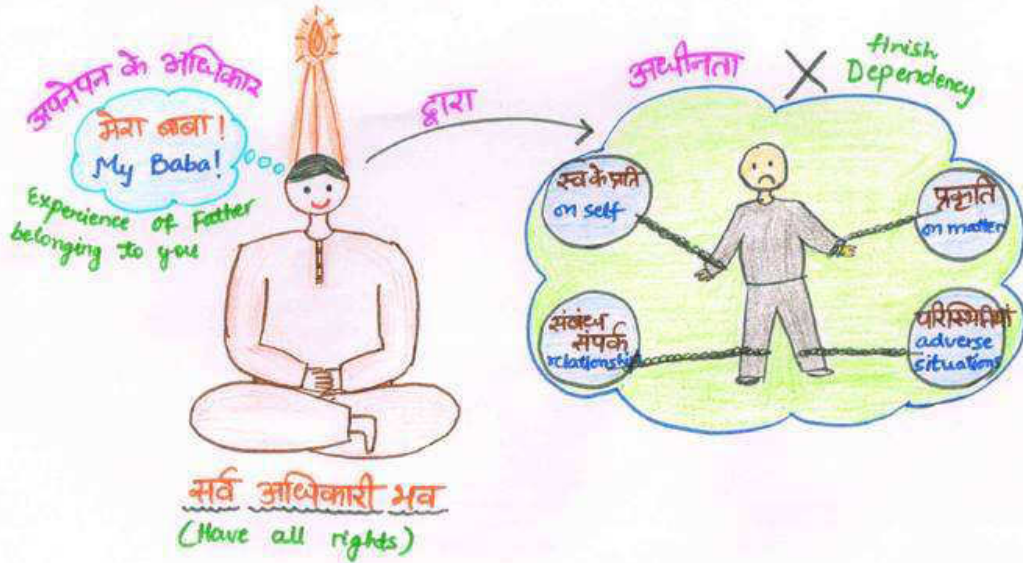 अपनेपन के अधिकार
मेरा बाबा!
My Baba!
Experience of Father
belonging to you
द्वारा
अधीनता
finish
Dependency
स्व के प्रति
on self
प्रकृति
on matter
संबंध
संपर्क
relationship
परिस्थितियाँ
adverse
situations
सर्व अधिकारी भव
(Have all rights)